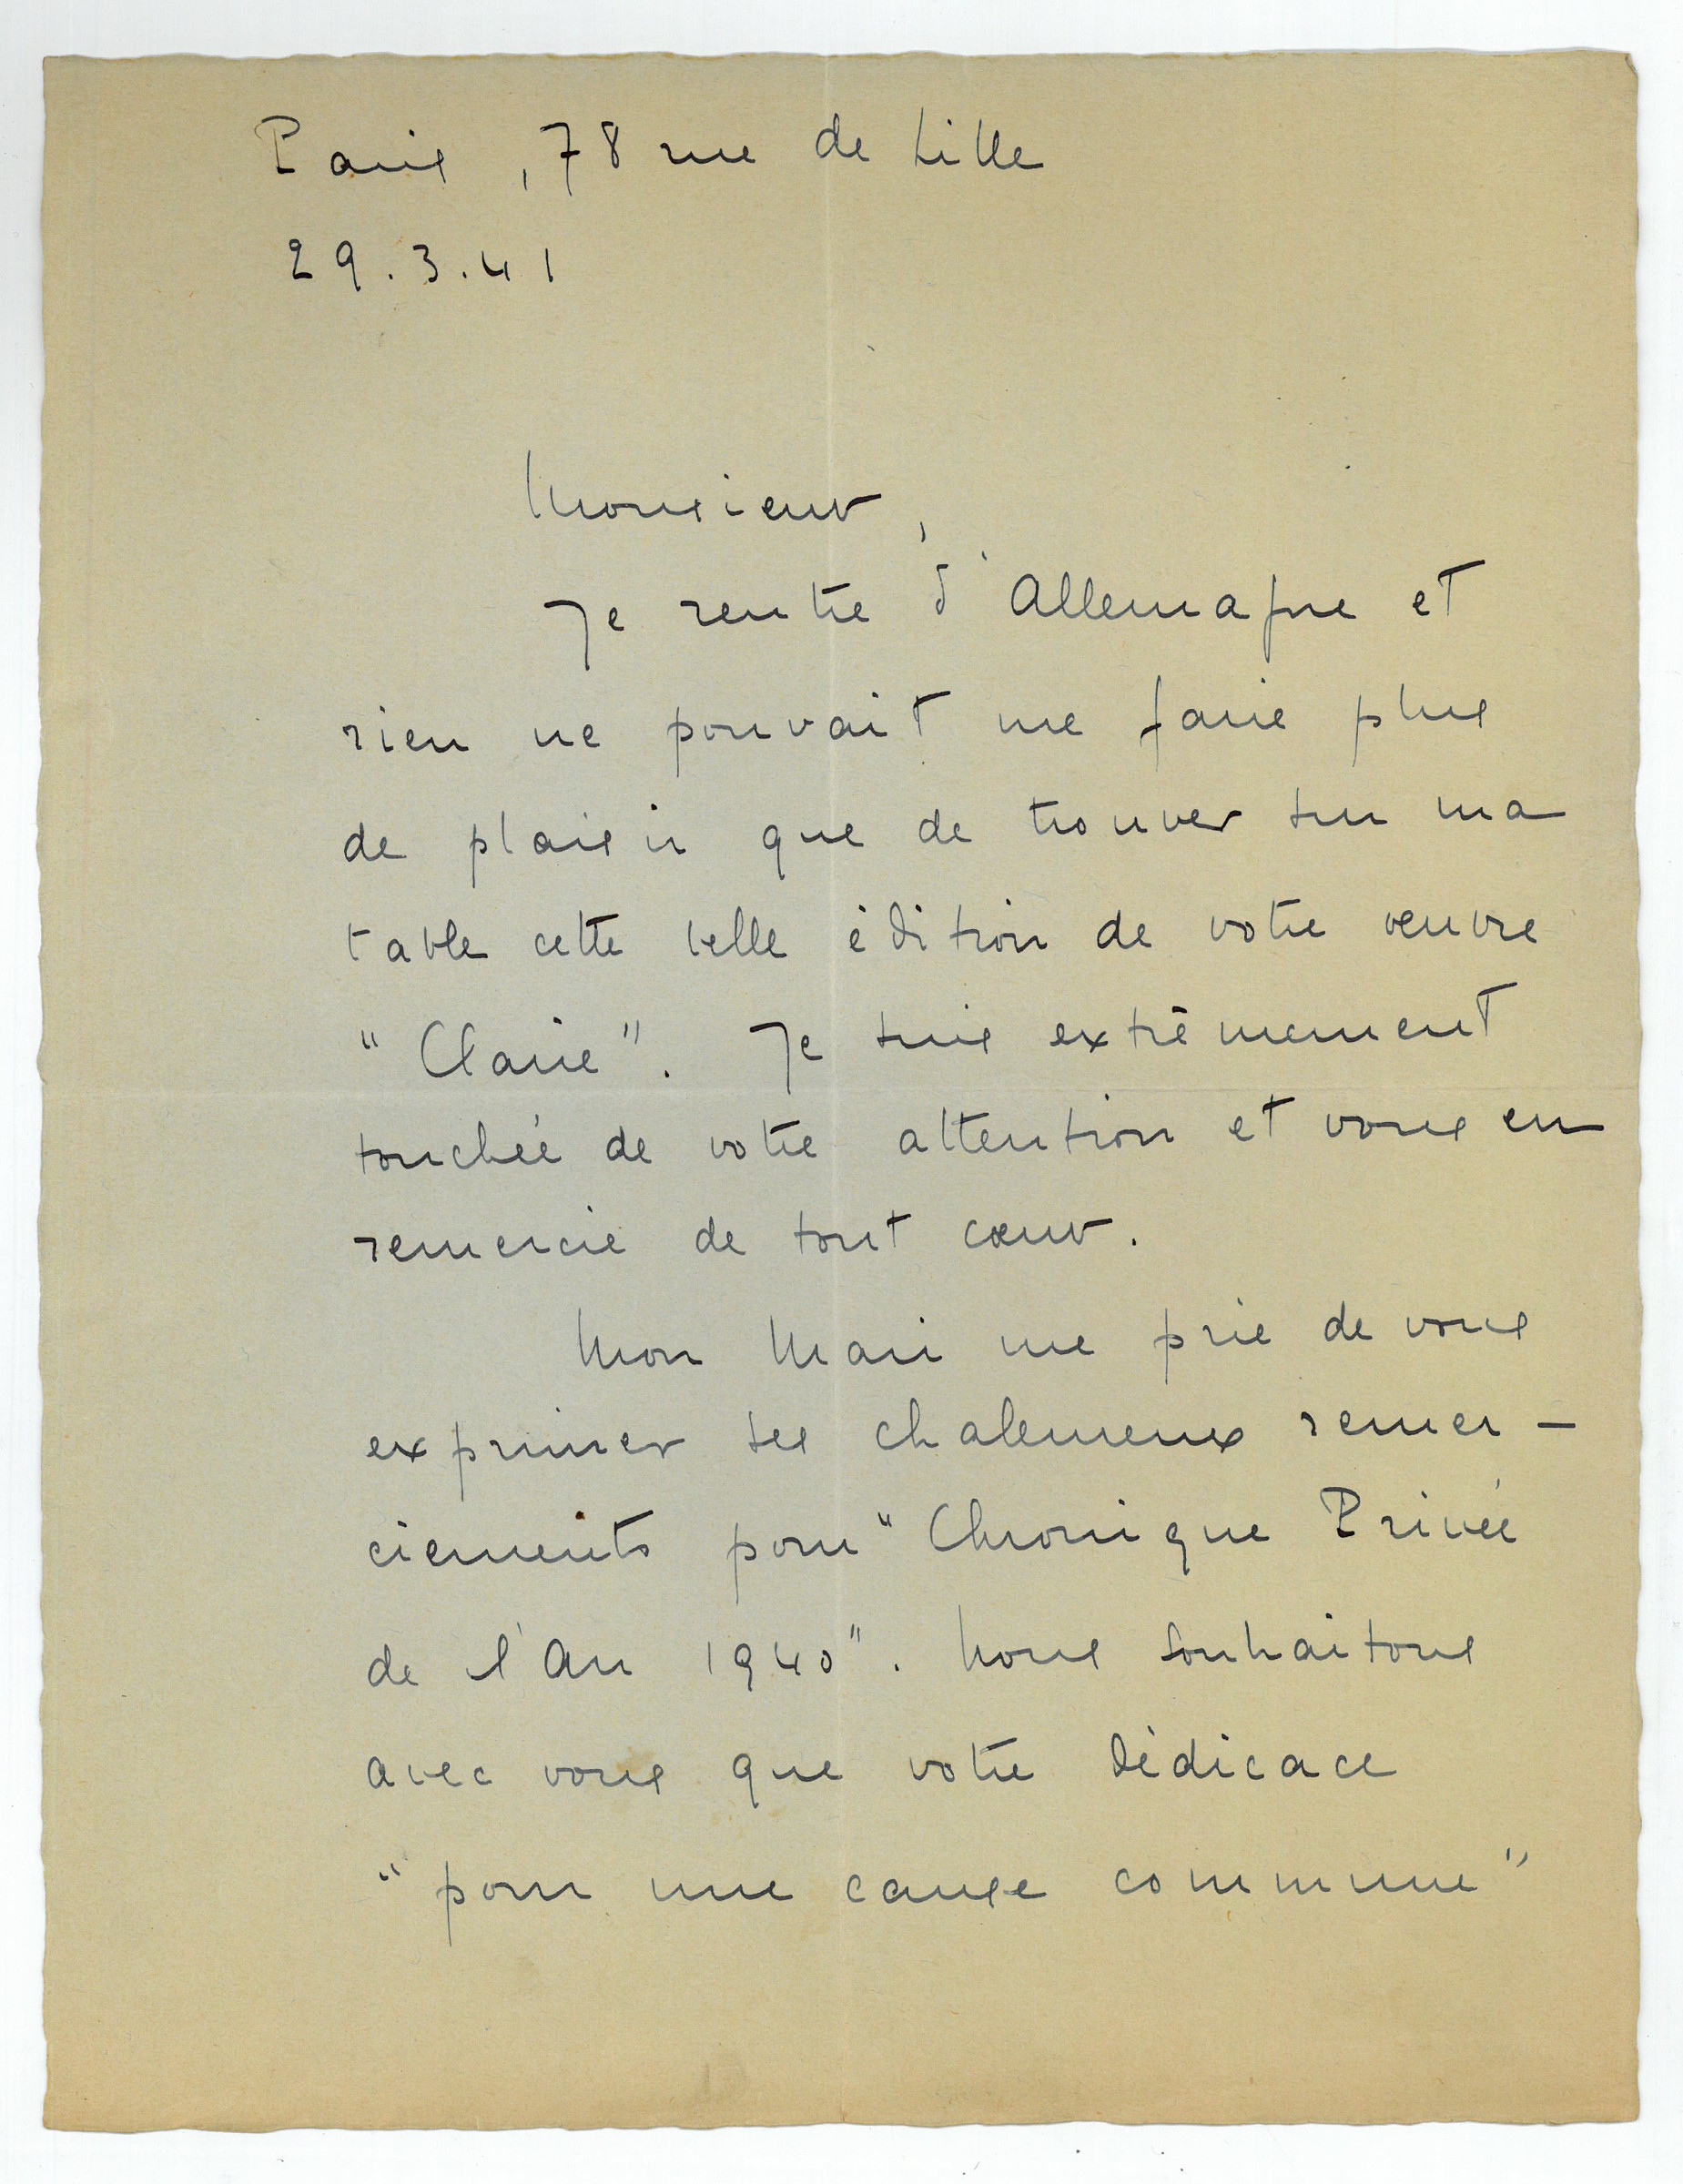 Paris, 78 rue de Lille
29.3.41
Monsieur,
Je rentre d'Allemagne et
rien ne pouvait me faire plus
de plaisir que de trouver sur ma
table cette belle édition de votre œuvre
"Claire". Je suis extrêmement
touchée de votre attention et vous en
remercie de tout cœur.
Mon Mari me prie de vous
exprimer ses chaleureux remer-
ciements pour "Chronique Privée
de l'An 1940". Nous souhaitons
avec vous que votre dédicace
"pour une cause commune"